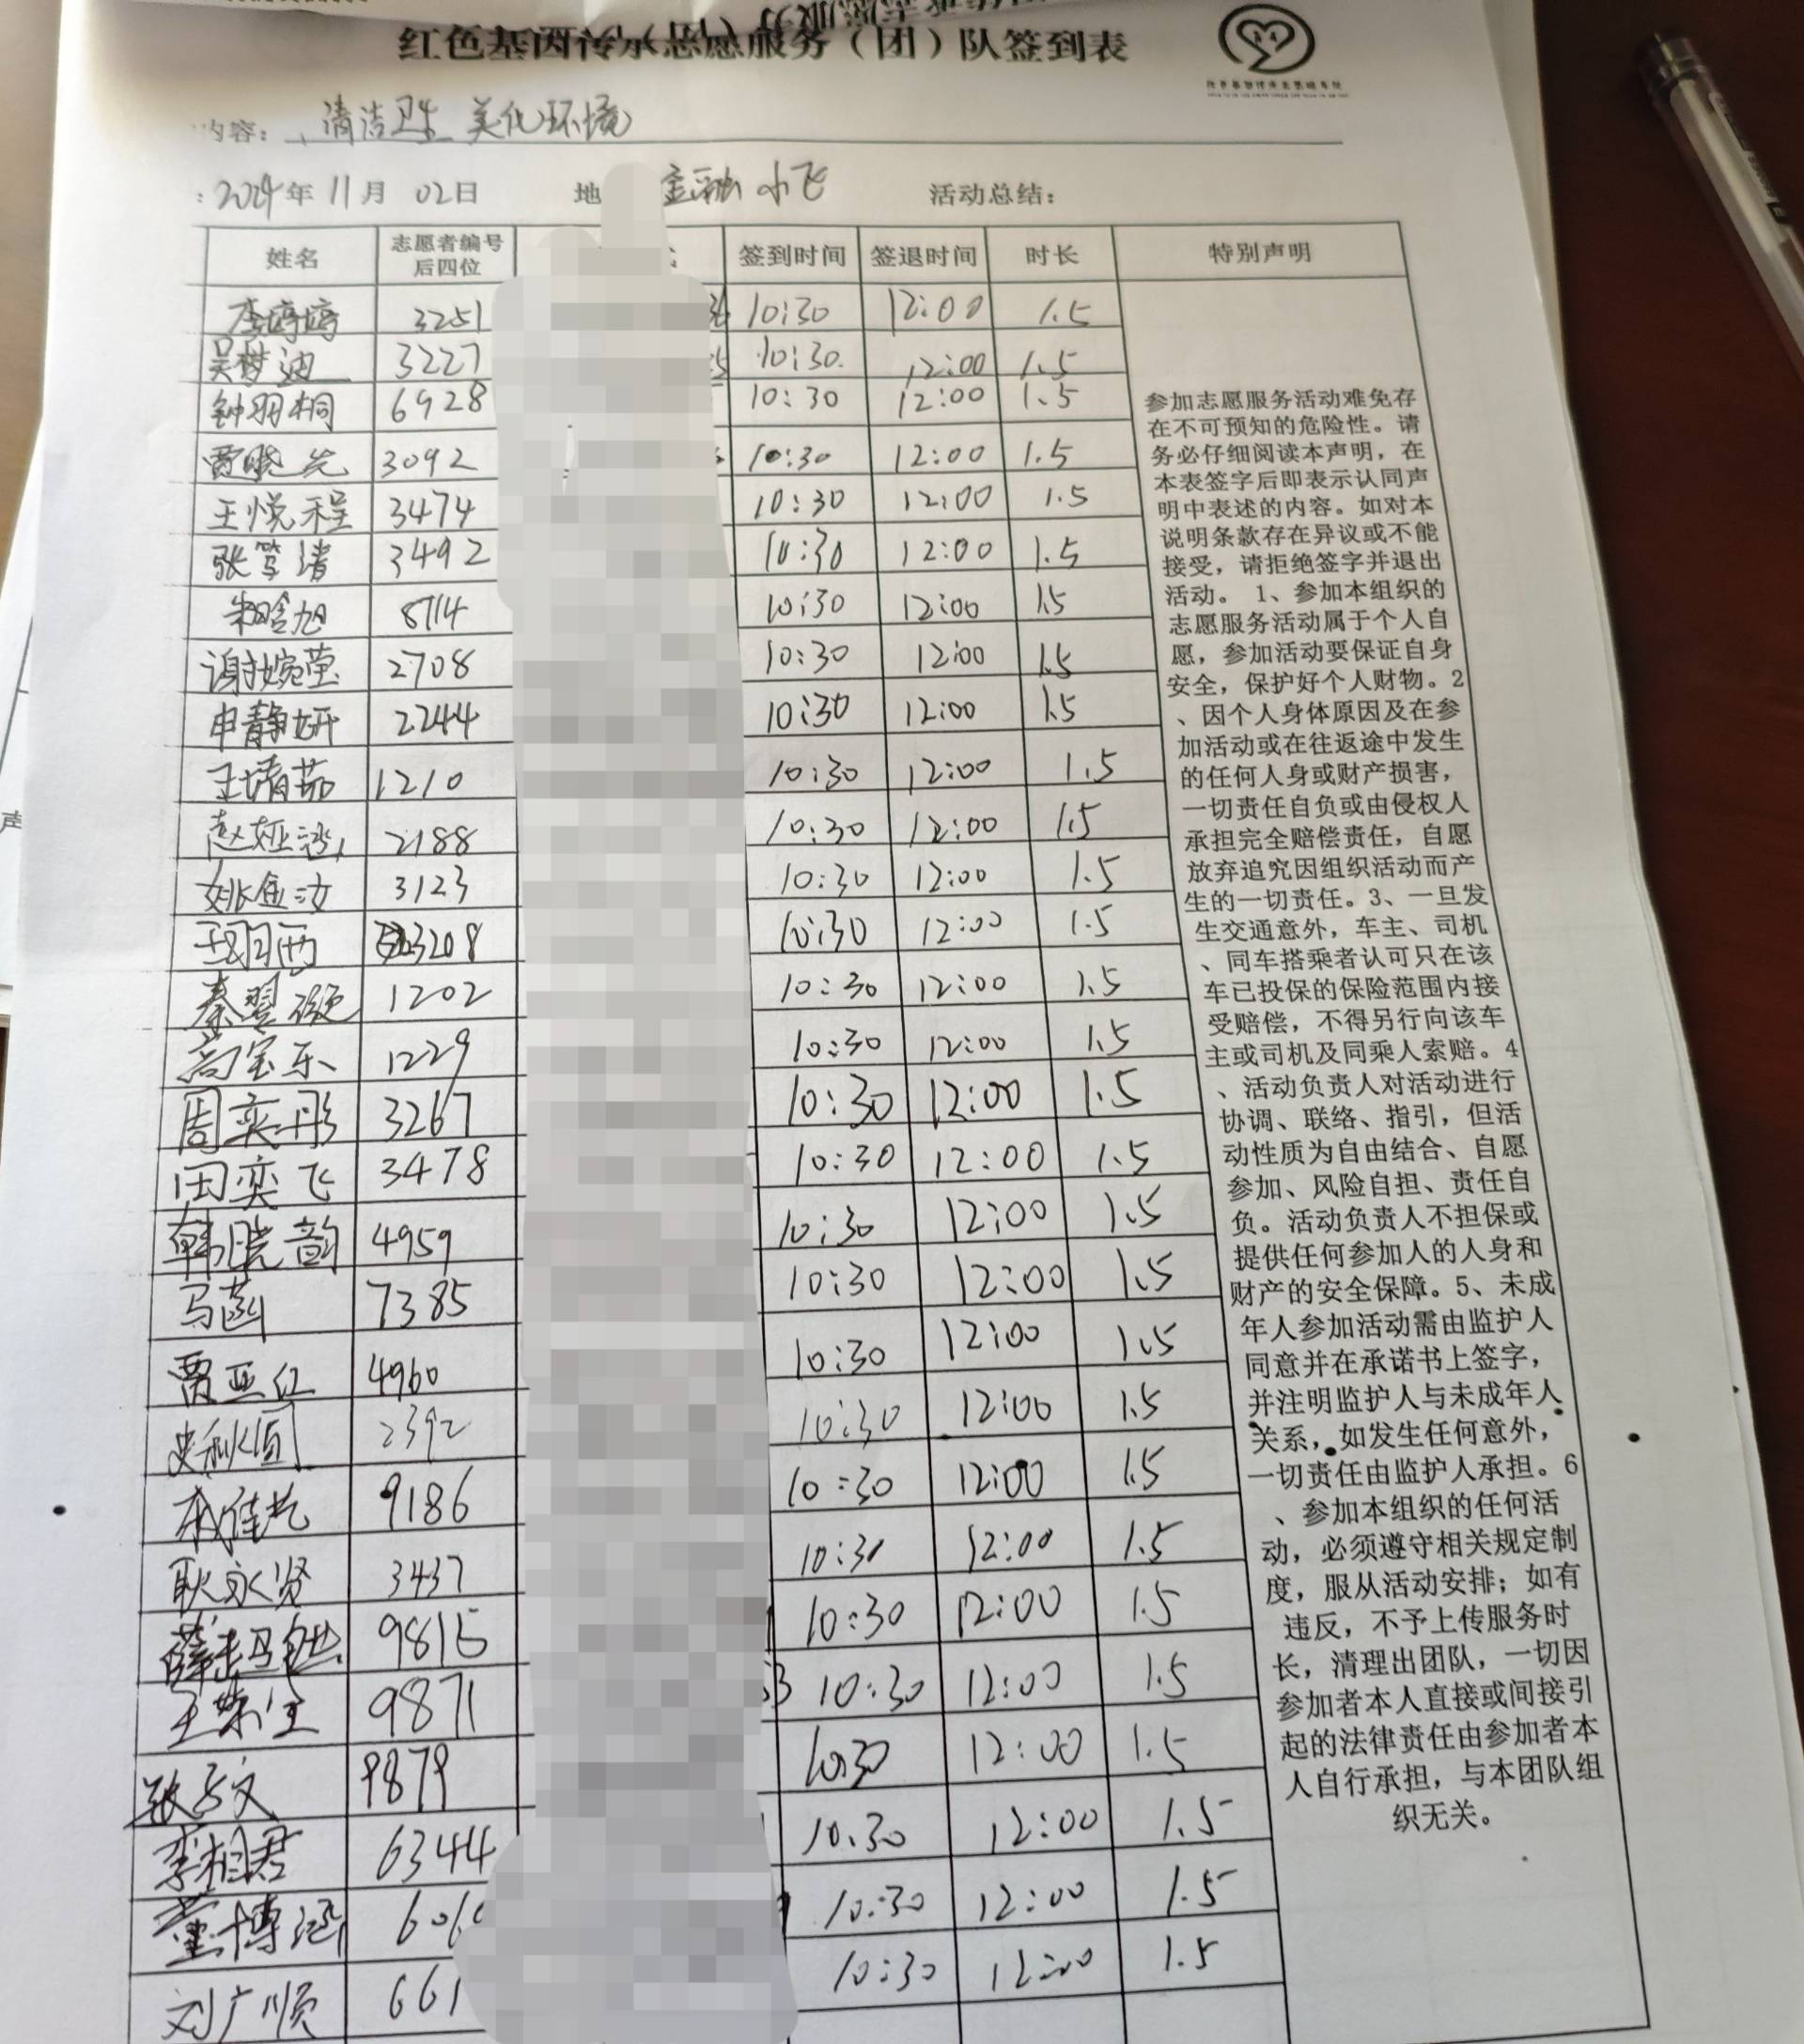 红色基因传承志愿服务(团)队签到表
内容: 清洁卫生 美化环境
: 2024年 11月 02日 地 金融小飞 活动总结:
姓名 志愿者编号后四位 签到时间 签退时间 时长 特别声明
李婷婷 3251 10:30 12:00 1.5
吴梦迪 3227 10:30 12:00 1.5
钟羽桐 6928 10:30 12:00 1.5
贾晓光 3092 10:30 12:00 1.5
王悦程 3474 10:30 12:00 1.5
张笃清 3492 10:30 12:00 1.5
朱晗旭 8714 10:30 12:00 1.5
谢婉莹 2708 10:30 12:00 1.5
申静妍 2244 10:30 12:00 1.5
王婧茹 1210 10:30 12:00 1.5
赵娅 2188 10:30 12:00 1.5
姚鱼汝 3123 10:30 12:00 1.5
西 3208 10:30 12:00 1.5
秦翌 1202 10:30 12:00 1.5
高宝乐 1229 10:30 12:00 1.5
周奕彤 3267 10:30 12:00 1.5
田奕飞 3478 10:30 12:00 1.5
韩晓韵 4959 10:30 12:00 1.5
马菡 7385 10:30 12:00 1.5
贾亚红 4960 10:30 12:00 1.5
史秋 2392 10:30 12:00 1.5
佳艺 9186 10:30 12:00 1.5
耿永贤 3437 10:30 12:00 1.5
薛 9815 10:30 12:00 1.5
王 9871 3 10:30 12:00 1.5
张 文 9879 10:30 12:00 1.5
李相君 6344 10:30 12:00 1.5
董博涵 606 10:30 12:00 1.5
刘广顺 661 10:30 12:00 1.5
参加志愿服务活动难免存
在不可预知的危险性。请
务必仔细阅读本声明,在
本表签字后即表示认同声
明中表述的内容。如对本
说明条款存在异议或不能
接受,请拒绝签字并退出
活动。 1、参加本组织的
志愿服务活动属于个人自
愿,参加活动要保证自身
安全,保护好个人财物。2
、因个人身体原因及在参
加活动或在往返途中发生
的任何人身或财产损害,
一切责任自负或由侵权人
承担完全赔偿责任,自愿
放弃追究因组织活动而产
生的一切责任。3、一旦发
生交通意外,车主、司机
、同车搭乘者认可只在该
车已投保的保险范围内接
受赔偿,不得另行向该车
主或司机及同乘人索赔。4
、活动负责人对活动进行
协调、联络、指引,但活
动性质为自由结合、自愿
参加、风险自担、责任自
负。活动负责人不担保或
提供任何参加人的人身和
财产的安全保障。5、未成
年人参加活动需由监护人
同意并在承诺书上签字,
并注明监护人与未成年人
关系,如发生任何意外,
一切责任由监护人承担。6
、参加本组织的任何活
动,必须遵守相关规定制
度,服从活动安排;如有
违反,不予上传服务时
长,清理出团队,一切因
参加者本人直接或间接引
起的法律责任由参加者本
人自行承担,与本团队组
织无关。